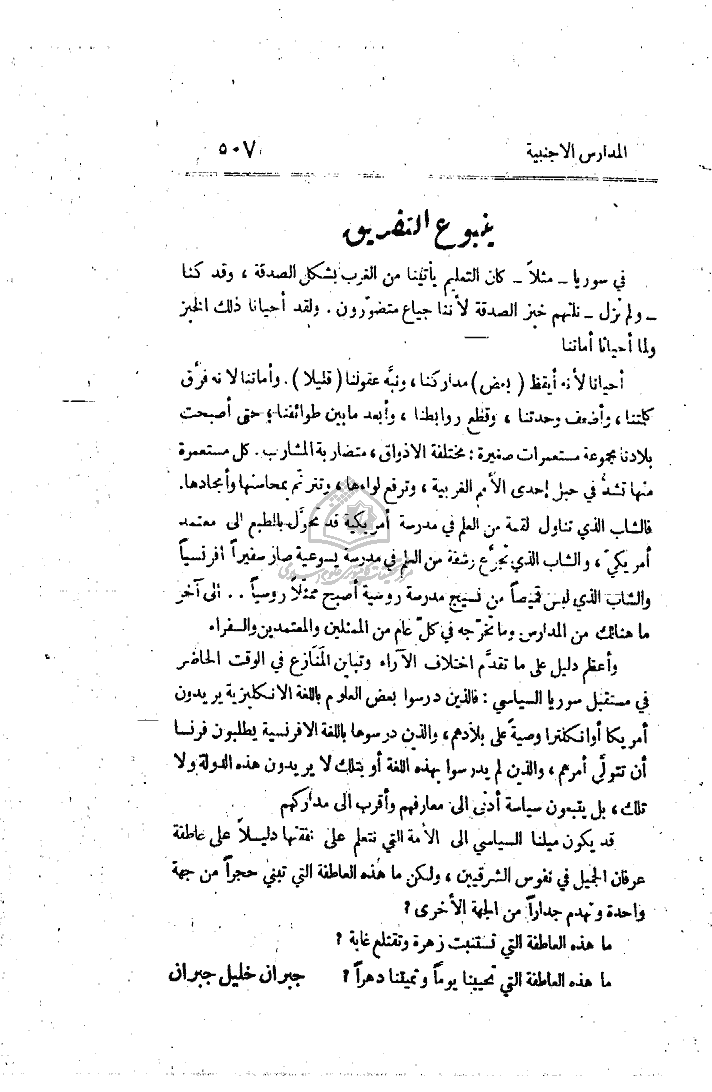 المدارس الاجنبية ٥٠٧
ينبوع التفريق
في سوريا ـ مثلاً ـ كان التعليم يأتينا من الغرب بشكل الصدقة ، وقد كنا
ـ ولم نزل ـ نلتهم خبز الصدقة لأننا جياع متضورون . ولقد أحيانا ذلك الخبز
ولما أحيانا أماتنا
أحيانا لأنه أيقظ ( بعض ) مداركنا ، ونبَّه عقولنا ( قليلا ) . وأماتنا لانه فرَّق
كلمتنا ، وأضعف وحدتنا ، وقطع روابطنا ، وأبعد مابين طوائفنا ؛ حتى أصبحت
بلادنا مجموعة مستعمرات صغيرة : مختلفة الاذواق ، متضاربة المشارب . كل مستعمرة
منها تشدُّ في حبل إحدى الأمم الغربية ، وترفع لواءها ، وتترنم بمحاسنها وأمجادها.
فالشاب الذي تناول لقمة من العلم في مدرسة أمريكية قد تحوَّل بالطبع الى معتمد
أمريكيّ ، والشاب الذي تجرَّع رشفة من العلم في مدرسة يسوعية صار سفيراً افرنسياً
والشاب الذي لبس قميصاً من نسيج مدرسة روسية أصبح ممثلاً روسياً . . الى آخر
ما هنالك من المدارس وما تخرّجه في كلّ عام من الممثلين والمعتمدين والسفراء
وأعظم دليل على ما تقدَّم اختلاف الآراء وتباين المَنازع في الوقت الحاضر
في مستقبل سوريا السياسي : فالذين درسوا بعض العلوم باللغة الانكليزية يريدون
أمريكا أو انكلترا وصيةً على بلادهم ، والذين درسوها باللغة الافرنسية يطلبون فرنسا
أن تتولَّى أمرهم ، والذين لم يدرسوا بهذه اللغة أو بتلك لا يريدون هذه الدولة ولا
تلك ، بل يتبعون سياسة أدنى الى معارفهم وأقرب الى مداركهم
قد يكون ميلنا السياسي الى الأمة التي نتعلم على نفقتها دليلاً على عاطفة
عرفان الجميل في نفوس الشرقيين ، ولكن ما هذه العاطفة التي تبني حجراً من جهة
واحدة وتهدم جداراً من الجهة الأخرى ؟
ما هذه العاطفة التي تستنبت زهرة وتقتلع غابة ؟
ما هذه العاطفة التي تحيينا يوماً وتميتنا دهراً ؟ جبران خليل جبران